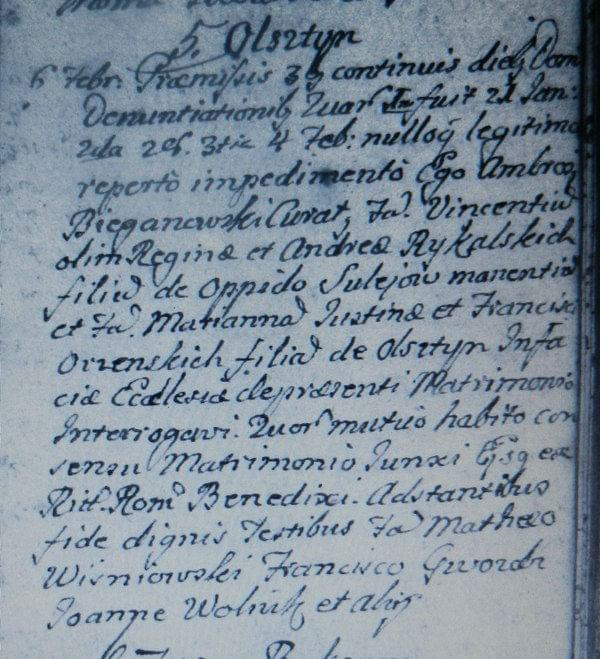 5. Olsztyn
6 Febr. Præmissis 3bq continuis dieq Dom
Denuntiationibq Quar 1ma fuit 21 Jan:
2da 28. 3tia 4 Feb: nulloq legitimo
repertò impedimentò Ego Ambroq
Bieganowski Curatq Fa. Vincentiū
olim Reginæ et Andreæ Rykalskich
filiū de oppido Sulejow manentiū
et Fa. Mariannā Justinæ et Francisci
Orzenskich filiā de Olsztyn In fa
ciæ Ecclesiæ de præsenti Matrimoniò
Interrogavi. Quor mutuo habito con
sensu Matrimoniò Junxi Eosq ex
Rit. Rom. Benedixi. Adstantibus
fide dignis Testibus Fa Mathæo
Wisniowski Francisco Gwozdz
Joanne Wolnik et alijs